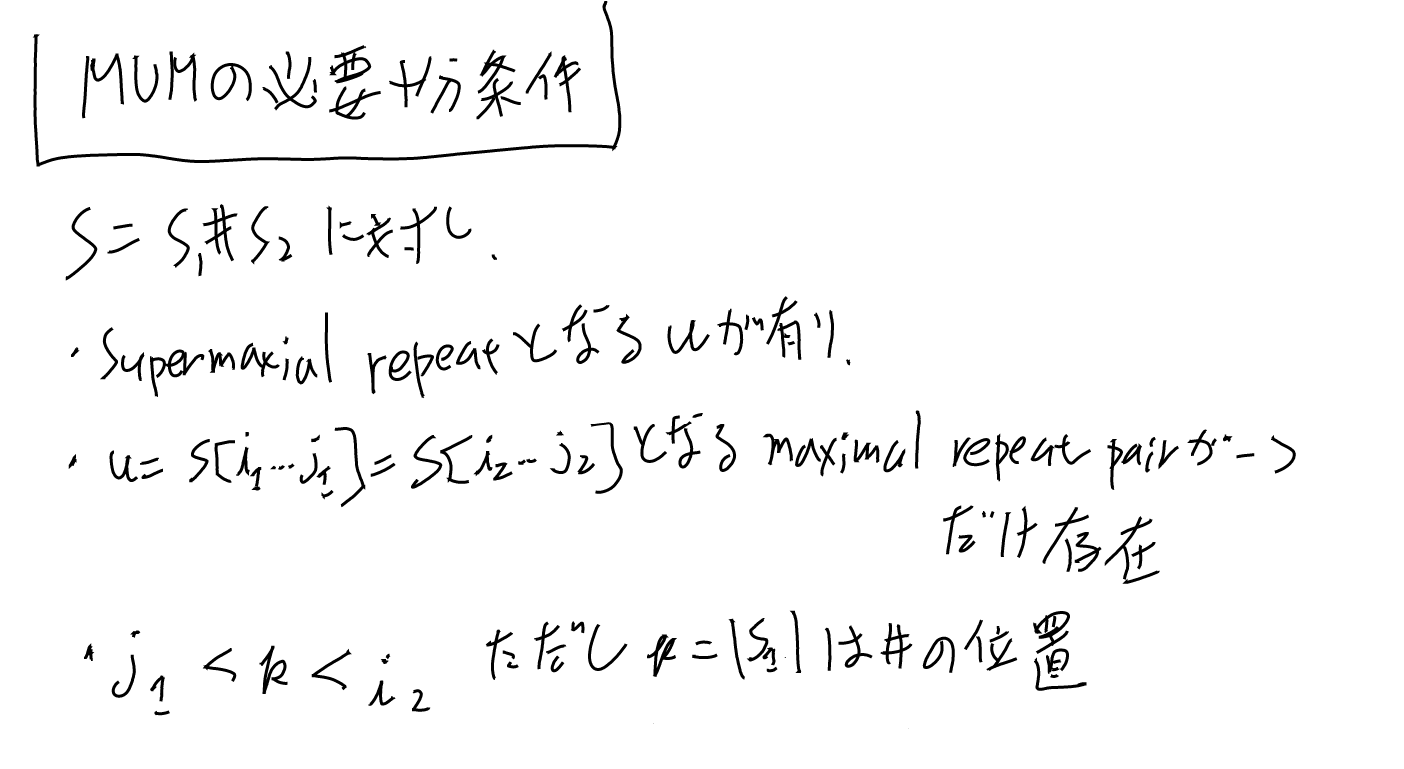 MUMの必要十分条件
S=S₁#S₂ に対し.
・Supermaxial repeatとなるuが有り.
・u=S[i₁…j₁]=S[i₂…j₂]となる maximal repeat pairが一つ
だけ存在
・j₁<k<i₂ ただし k=|S₁|は#の位置